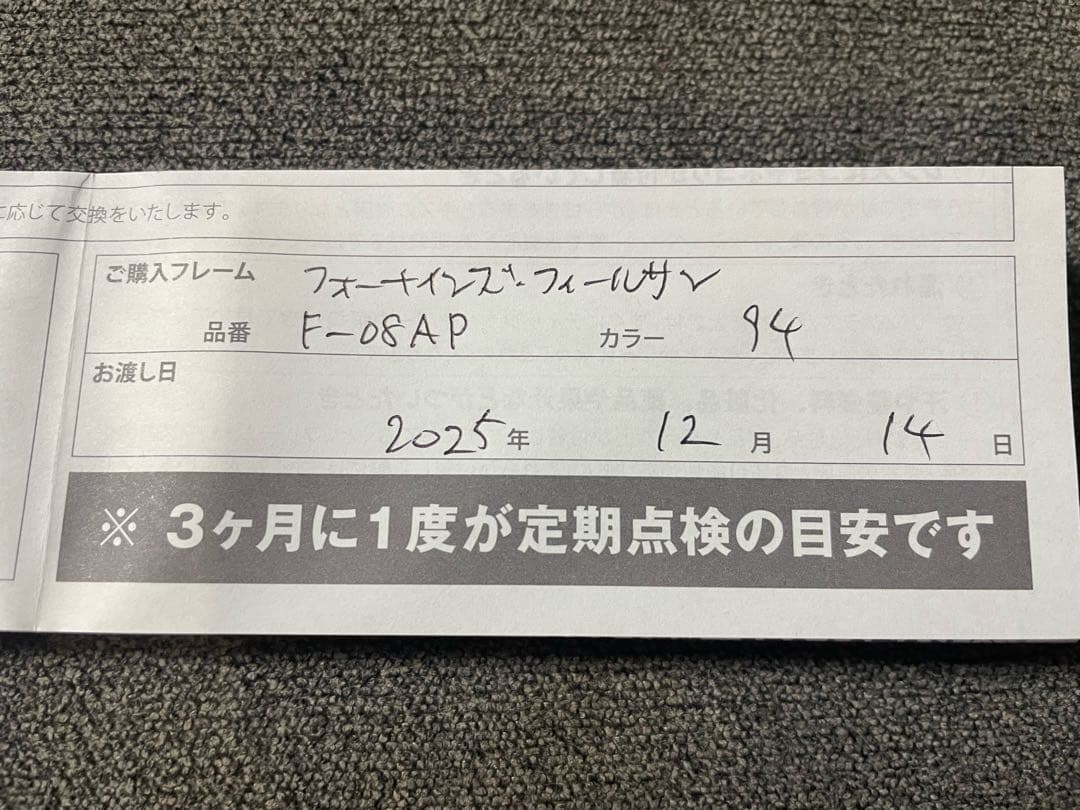 に応じて交換をいたします。
ご購入フレーム フォーナインズ・フィールサン
品番 F-08AP カラー 94
お渡し日
2025年 12月 14日
※ 3ヶ月に1度が定期点検の目安です